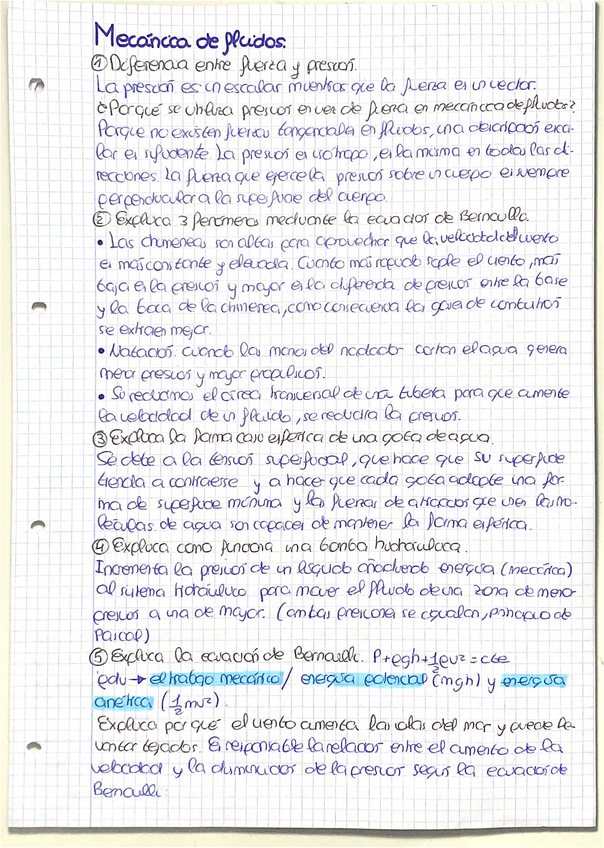 Mecánica de fluidos.
① Diferencia entre fuerza y presión.
La presión es un escalar mientras que la fuerza es un vector.
¿Porqué se utiliza presión en vez de fuerza en mecánica de fluidos?
Porque no existen fuerzas tangenciales en fluidos, una descripción esca-
lar es suficiente. La presión es isótropo, es la misma en todas las di-
recciones. La fuerza que ejerce la presión sobre un cuerpo es siempre
perpendicular a la superficie del cuerpo.
② Explica 3 fenómenos mediante la ecuación de Bernoulli.
• Las chimeneas son altas para aprovechar que la velocidad del viento
es más constante y elevada. Cuanto más rápido sople el viento, más
baja es la presión y mayor es la diferencia de presión entre la base
y la boca de la chimenea, como consecuencia los gases de combustión
se extraen mejor.
• Natación. cuando las manos del nadador cortan el agua genera
menor presión y mayor propulsión.
• Si reducimos el área transversal de una tubería para que aumente
la velocidad de un fluido, se reducirá la presión.
③ Explica la forma casi esférica de una gota de agua.
Se debe a la tensión superficial, que hace que su superficie
tienda a contraerse y a hacer que cada gota adopte una for-
ma de superficie mínima y las fuerzas de atracción que unen las mo-
léculas de agua son capaces de mantener la forma esférica.
④ Explica como funciona una bomba hidráulica.
Incrementa la presión de un líquido añadiendo energía (mecánica)
al sistema hidráulico para mover el fluido de una zona de menor
presión a una de mayor. (ambas presiones se igualan, principio de
Pascal)
⑤ Explica la ecuación de Bernoulli. P+ρgh+½ρv²=cte
pdv → el trabajo mecánico / energía potencial (mgh) y energía
cinética (½mv²).
Explica por qué el viento aumenta las olas del mar y puede le-
vantar tejados. Es responsable la relación entre el aumento de la
velocidad y la disminución de la presión según la ecuación de
Bernoulli.